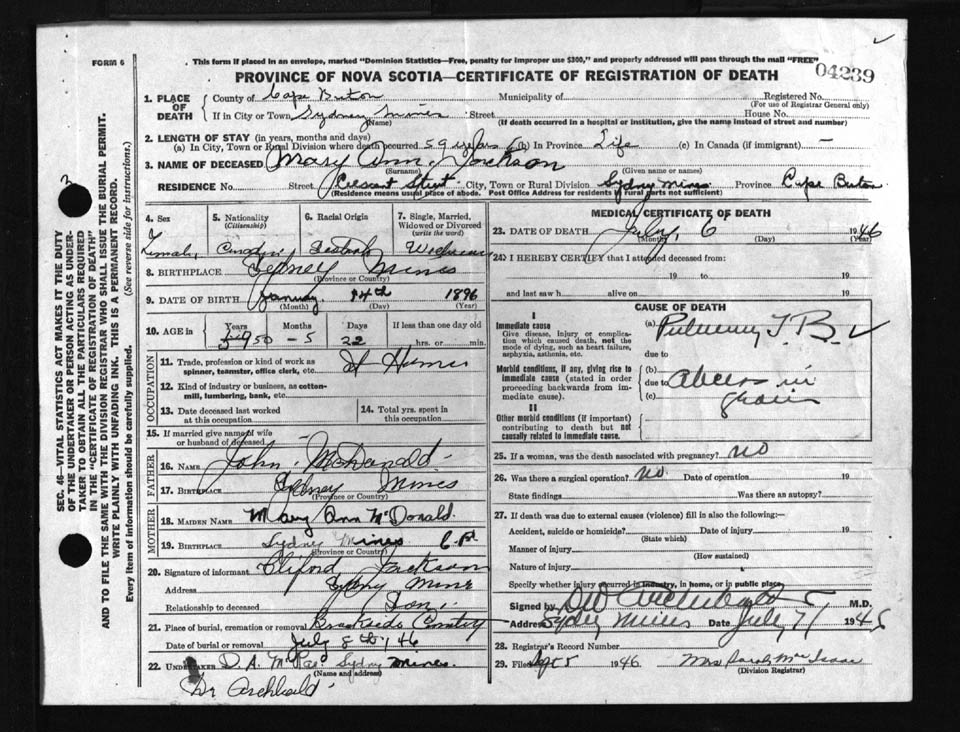 FORM 6
This form if placed in an envelope, marked "Dominion Statistics—Free, penalty for improper use $300," and properly addressed will pass through the mail "FREE"
04239
PROVINCE OF NOVA SCOTIA—CERTIFICATE OF REGISTRATION OF DEATH
SEC. 46—VITAL STATISTICS ACT MAKES IT THE DUTY
OF THE UNDERTAKER OR PERSON ACTING AS UNDER-
TAKER TO OBTAIN ALL THE PARTICULARS REQUIRED
IN THE "CERTIFICATE OF REGISTRATION OF DEATH"
AND TO FILE THE SAME WITH THE DIVISION REGISTRAR WHO SHALL ISSUE THE BURIAL PERMIT.
WRITE PLAINLY WITH UNFADING INK. THIS IS A PERMANENT RECORD.
Every item of information should be carefully supplied. (See reverse side for instructions.)
1. PLACE OF DEATH County of Cape Breton Municipality of Registered No.
(For use of Registrar General only)
If in City or Town Sydney Mines Street House No.
(Name) (If death occurred in a hospital or institution, give the name instead of street and number)
2. LENGTH OF STAY (in years, months and days)
(a) In City, Town or Rural Division where death occurred 59 years (b) In Province Life (c) In Canada (if immigrant) —
3. NAME OF DECEASED Mary Ann Jackson
(Surname) (Given name or names)
RESIDENCE No. Street Street City, Town or Rural Division Sydney Mines Province Cape Breton
(Residence means usual place of abode. Post Office Address for residents of rural parts not sufficient)
4. Sex 5. Nationality (Citizenship) 6. Racial Origin 7. Single, Married, Widowed or Divorced (write the word)
Female
8. BIRTHPLACE Sydney Mines
(Province or Country)
9. DATE OF BIRTH January 14th 1896
(Month) (Day) (Year)
10. AGE in Years Months Days If less than one day old
50 - 5 22 hrs. or min.
OCCUPATION
11. Trade, profession or kind of work as
spinner, teamster, office clerk, etc. At Home
12. Kind of industry or business, as cotton-
mill, lumbering, bank, etc.
13. Date deceased last worked
at this occupation
14. Total yrs. spent in
this occupation
15. If married give name of wife
or husband of deceased
FATHER
16. NAME John McDonald
17. BIRTHPLACE Sydney Mines
(Province or Country)
MOTHER
18. MAIDEN NAME Mary Ann McDonald
19. BIRTHPLACE Sydney Mines
(Province or Country)
20. Signature of informant Cliford Jackson
Address Sydney Mines
Relationship to deceased Son
21. Place of burial, cremation or removal Brookside Cemetery
Date of burial or removal July 8th, 46
22. UNDERTAKER D. A. McRae Sydney Mines.
(Name and address)
Dr Archbald
MEDICAL CERTIFICATE OF DEATH
23. DATE OF DEATH July, 6 1946
(Month) (Day)
24. I HEREBY CERTIFY that I attended deceased from:
19 to 19
and last saw h alive on 19
CAUSE OF DEATH
I
Immediate cause
Give disease, injury or complica-
tion which caused death, not the
mode of dying, such as heart failure,
asphyxia, asthenia, etc.
(a) Pulmonary T.B.
due to
Morbid conditions, if any, giving rise to
immediate cause (stated in order
proceeding backwards from im-
mediate cause).
(b)
due to Abcess in
(c) groin
II
Other morbid conditions (if important)
contributing to death but not
causally related to immediate cause.
25. If a woman, was the death associated with pregnancy? no
26. Was there a surgical operation? no. Date of operation 19
State findings Was there an autopsy?
27. If death was due to external causes (violence) fill in also the following:—
Accident, suicide or homicide? Date of injury 19
(State which)
Manner of injury
(How sustained)
Nature of injury
Specify whether injury occurred in industry, in home, or in public place
Signed by DW Archibald M.D.
Address Sydney Mines Date July 7/ 1946
28. Registrar's Record Number
29. Filed Sept 5 1946. Mrs Sarah Mac Isaac
(Division Registrar)